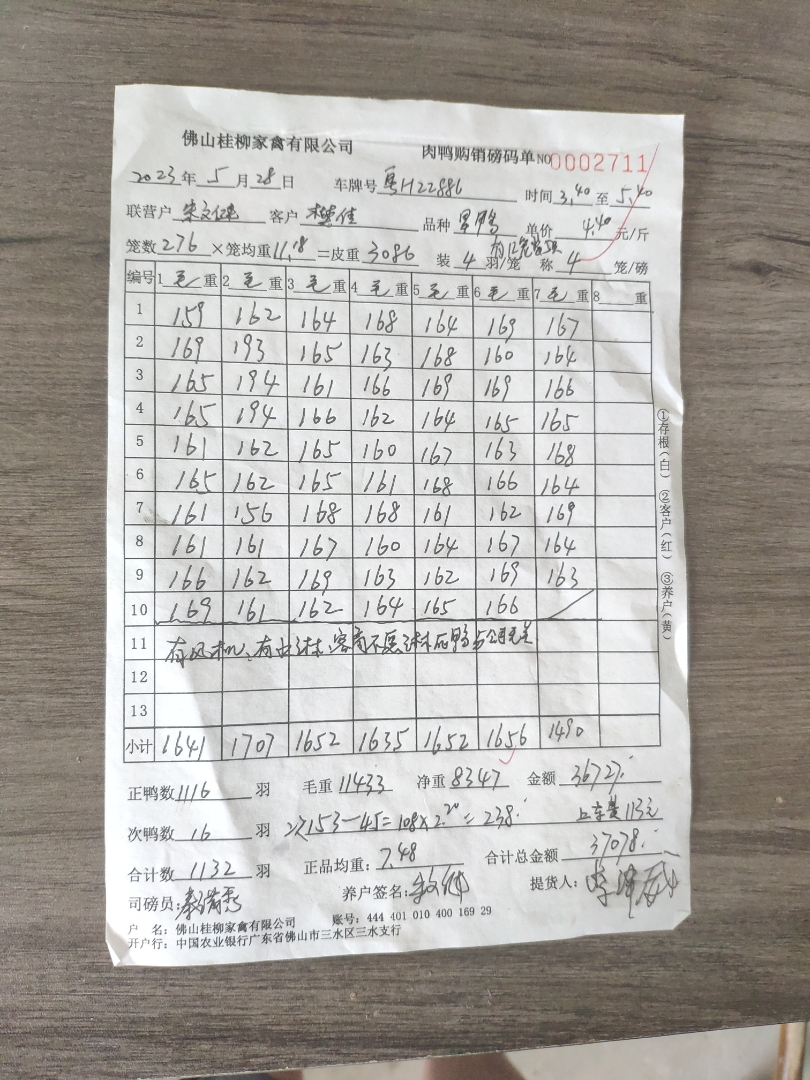 佛山桂柳家禽有限公司 肉鸭购销磅码单 NO 0002711
2023年 5 月 28 日 车牌号 粤H22886 时间 3,40 至 5,40
联营户 宋文仕 客户 樊佳 品种 男鸭 单价 4.40 元/斤
笼数 276 ×笼均重 11.18 =皮重 3086 装 4 羽/笼 称 4 笼/磅
编号 1 毛 重 2 毛 重 3 毛 重 4 毛 重 5 毛 重 6 毛 重 7 毛 重 8 重
1 159 162 164 168 164 169 167
2 169 193 165 163 168 160 164
3 165 194 161 166 169 169 166
4 165 194 166 162 164 165 165
5 161 162 165 160 167 163 168
6 165 162 165 161 168 166 164
7 161 156 168 168 161 162 169
8 161 161 167 160 164 167 164
9 166 162 169 163 162 169 163
10 169 161 162 164 165 166
11 有风机、有水淋,客
12
13
小计 1641 1707 1652 1635 1652 1656 1490
①存根(白) ②客户(红) ③养户(黄)
正鸭数 1116 羽 毛重 11433 净重 8347 金额 36727.
次鸭数 16 羽 153-45=108×2.20=238. 上车费 113元
合计数 1132 羽 正品均重: 7.48 合计总金额 37078.
司磅员: 养户签名: 提货人:
户 名: 佛山桂柳家禽有限公司 账号: 444 401 010 400 169 29
开户行: 中国农业银行广东省佛山市三水区三水支行